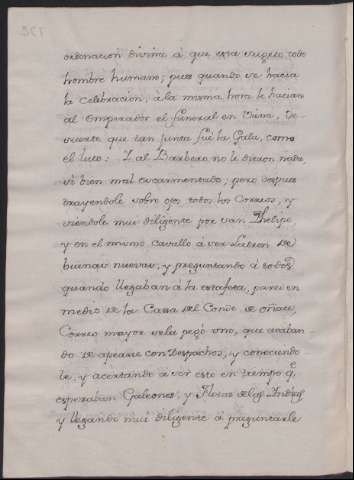 ordenacion divina á que esta sugeto todo
hombre humano; pues quando se hacia
la celebracion, á la misma hora le hacian
al Emperador el funeral en Viena, de
suerte que tan junta fue la Gala, como
el luto: Y al Barbero no le dieron nada,
si bien mal escarmentado, pero despues
trayendole sobre ojos todos los Correos, y
viendole mui diligente por san Phelipe,
y en el mismo cavallo á ver Lutren de
buenas nuevas, y preguntando á todos
quando llegaban á la estafeta, pared en
medio de la Cassa del Conde de Oñate,
Correo mayor se le pegó uno, que acaban-
do de apearse con Despachos, y conociendo
le, y acertando a ser esto en tiempo q.e
esperaban Galeones, y Flotas de las Indias,
y llegando mui diligente á preguntarle